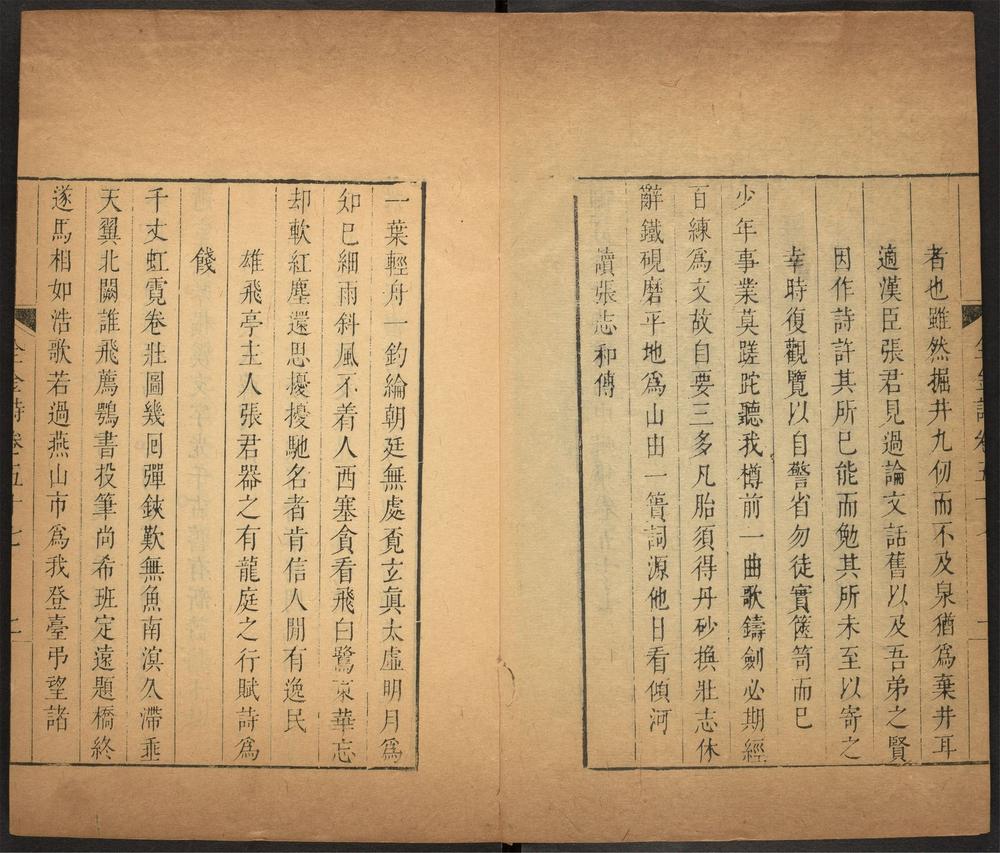 者也雖然掘井九仞而不及泉猶爲棄井耳
適漢臣張君見過論文話舊以及吾弟之賢
因作詩許其所已能而勉其所未至以寄之
幸時復觀覽以自警省勿徒實篋笥而已
少年事業莫蹉跎聽我樽前一曲歌鑄劍必期經
百練爲文故自要三多凡胎須得丹砂換壯志休
辭鐵硯磨平地爲山由一簣詞源他日看傾河
讀張志和傳
一葉輕舟一釣綸朝廷無處覔玄眞太虛明月爲
知已細雨斜風不着人西塞貪看飛白鷺東華忘
却軟紅塵還思擾擾馳名者肯信人閒有逸民
雄飛亭主人張君器之有龍庭之行賦詩爲
餞
千丈虹霓卷壯圖幾回彈鋏歎無魚南溟久滯垂
天翼北闕誰飛薦鶚書投筆尚希班定遠題橋終
遂馬相如浩歌若過燕山市爲我登臺弔望諸
全金詩卷五十七 二